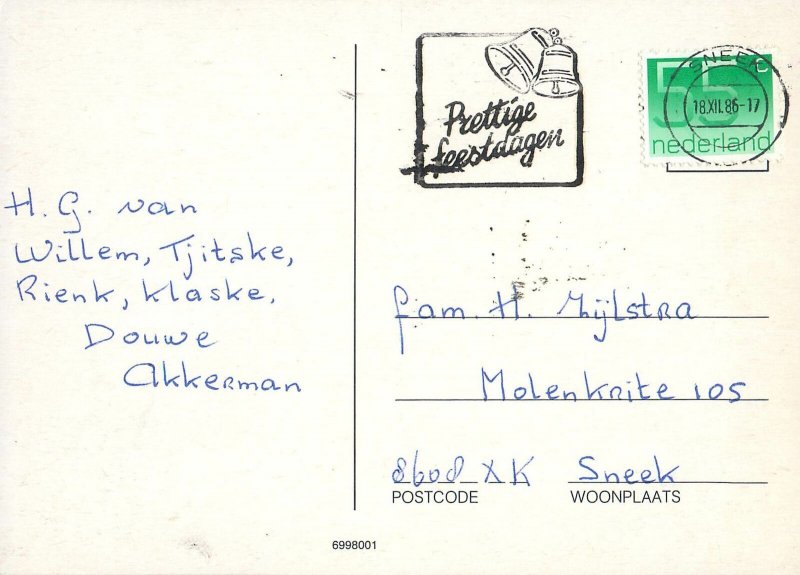 Prettige
feestdagen
SNEEK
18.XII.86-17
55 c
nederland
H. G. van
Willem, Tjitske,
Rienk, Klaske,
Douwe
Akkerman
fam. H. Zijlstra
Molenkrite 105
8608 XK Sneek
POSTCODE WOONPLAATS
6998001